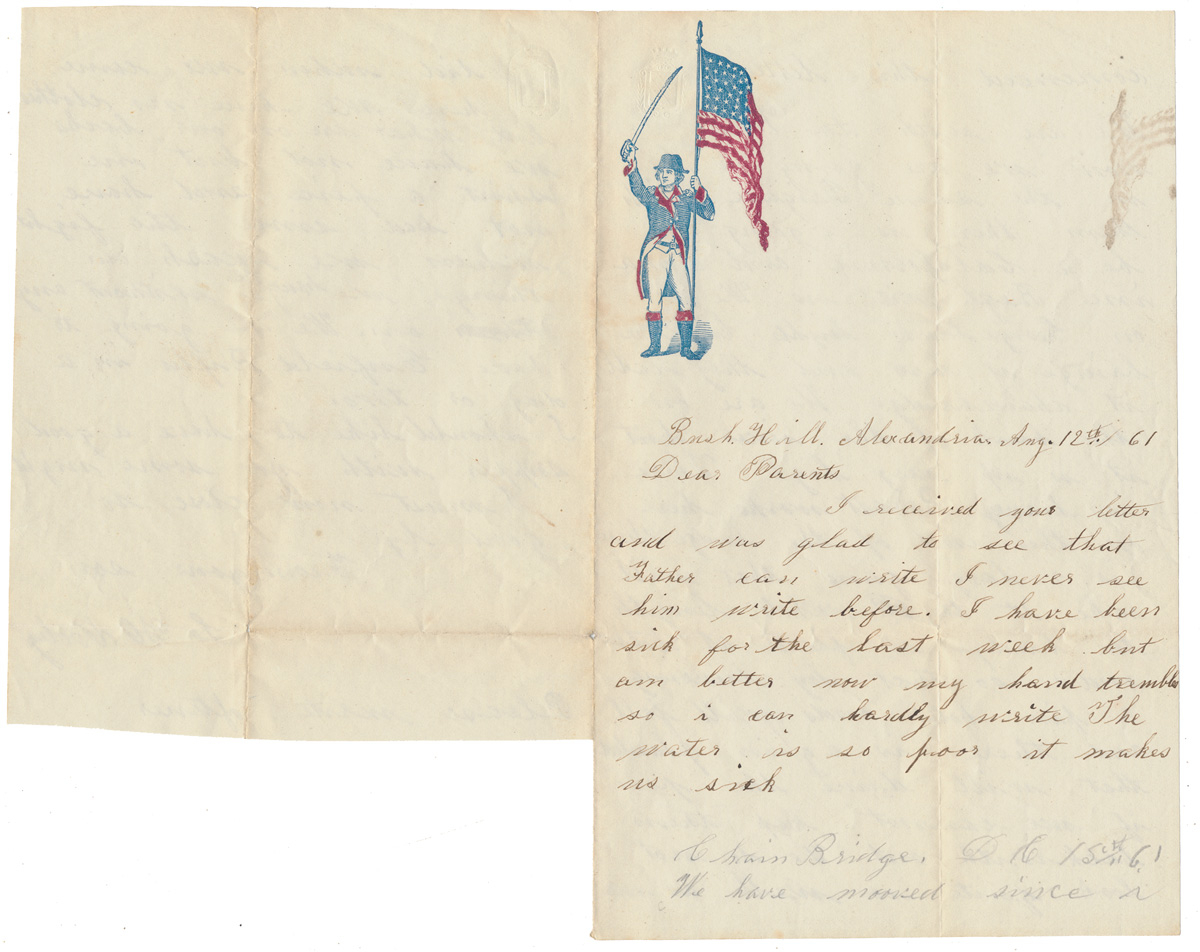 Bush Hill. Alexandria. Aug. 12th / 61
Dear Parents
I received your letter
and was glad to see that
Father can write I never see
him write before. I have been
sick for the last week but
am better now my hand trembles
so i can hardly write The
water is so poor it makes
us sick
Chain Bridge. D C 15th 61
We have mooved since i